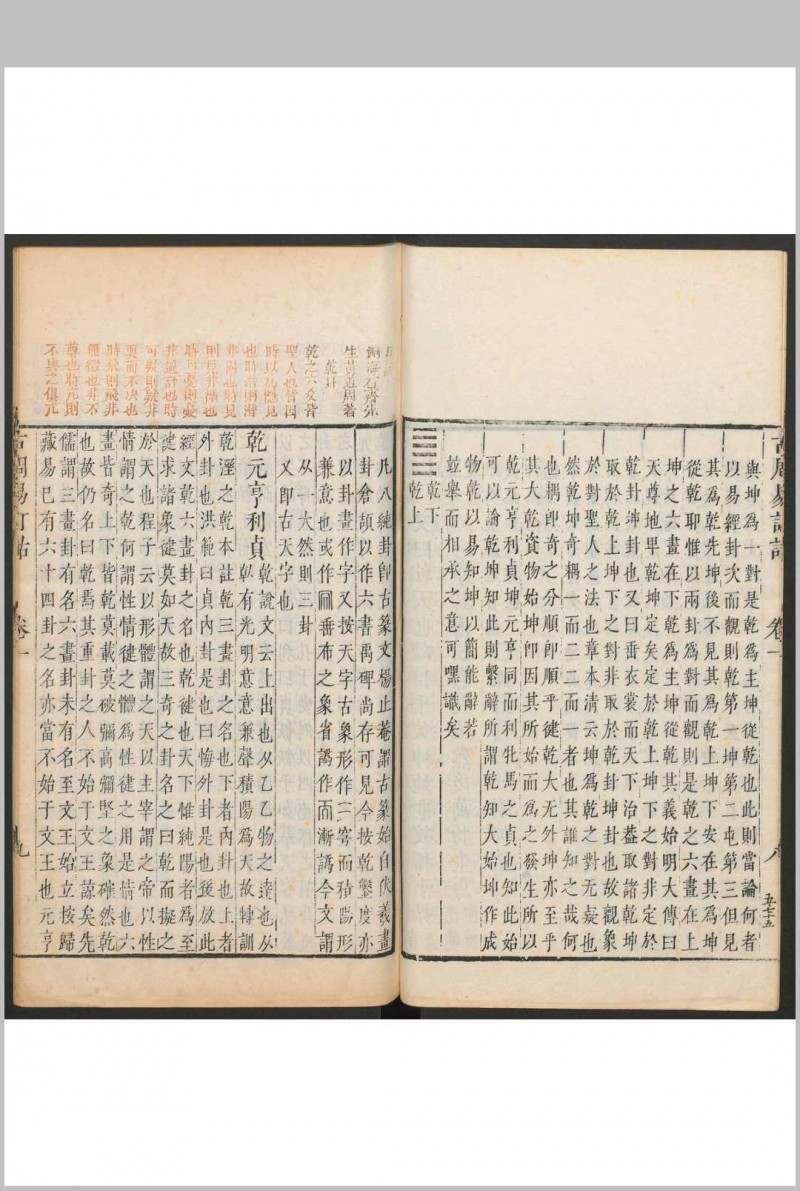 與坤為一對是乾為主坤從乾也此則當論何者
以易經卦次而觀則乾第一坤第二屯第三但見
其為乾先坤後不見其為乾上坤下安在其為坤
從乾耶惟以兩卦為對而觀則是乾之六畫在上
坤之六畫在下乾為主坤從乾其義始明大傳曰
天尊地卑乾坤定矣定於乾上坤下之對非定於
乾卦坤卦也又曰垂衣裳而天下治蓋取諸乾坤
取於乾上坤下之對非取於乾卦坤卦也故觀象
於對聖人之法也章本清云坤為乾之對无疑也
然乾坤奇耦一而二二而一者也其誰知之哉何
也耦卽奇之分順卽順乎徤乾大无外坤亦至乎
其大乾資物始坤卽因其所始而為之發生所以
乾元亨利貞坤元亨同而利牝馬之貞也知此始
可以論乾坤知此則繫辭所謂乾知大始坤作成
物乾以易知坤以簡能辭若
竝舉而相承之意可嘿識矣
乾下
乾上
古周易訂詁
卷一
八
五十五
銅海石齋先
生黃道周著
乾卦
乾之六爻皆
聖人也皆因
時以為隱見
也時潛則潛
非固也時見
則見非躁也
時可憂則憂
非過計也時
可疑則疑非
要而不决也
時飛則飛非
無禮也非不
尊也時亢則
不與之俱亢
凡八純卦卽古篆文楊止菴謂古篆始自伏羲畫
卦倉頡以作六書禹碑尚存可見今按乾鑿度亦
以卦畫作字又按天字古象形作三穹而積陽形
兼意也或作𠀘番布之象省譌作而漸譌今文謂
从一大然則三卦
又卽古天字也
乾元亨利貞
乾說文云上出也从乙乙物之達也从
倝有光明意意兼聲積陽為天故轉訓
乾溼之乾本註乾三畫卦之名也下者內卦也上者
外卦也洪範曰貞內卦是也曰悔外卦是也後放此
經文乾六畫卦之名也乾徤也天下惟純陽者為至
徤求諸象徤莫如天故三奇之卦名之曰乾而擬之
於天也程子云以形體謂之天以主宰謂之帝以性
情謂之乾何謂性情徤之體為性徤之用是情也六
畫皆奇上下皆乾莫載莫破彌高彌堅之象確然乾
也故仍名曰乾焉其重卦之人不始于文王諒矣先
儒謂三畫卦有名六畫卦未有名至文王始立按歸
藏易已有六十四卦之名亦當不始于文王也元亨
古周易訂詁
卷一
九